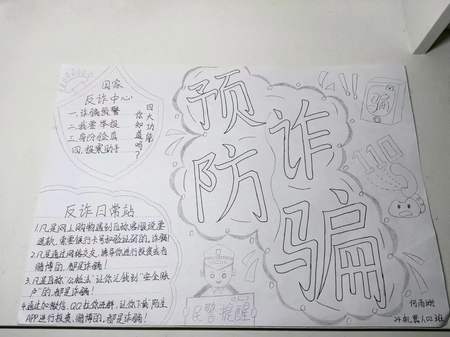 国家
反诈中心
一、诈骗预警
二、我要举报
三、身份验真
四、报案助手
四大功能
你知道吗?
预防
诈骗
骗
110
反诈日常站
1.凡是网上购物遇到自称客服说要
退款,索要银行卡号和验证码的,诈骗!
2.凡是通过网络交友,诱导你进行投资或者
赌博的,都是诈骗!
3.凡是自称"公检法"让你汇钱到"安全账
户"的,都是诈骗!
4.通过加微信、QQ拉你进群,让你下载陌生
APP进行投资、赌博的,都是诈骗!
民警提醒